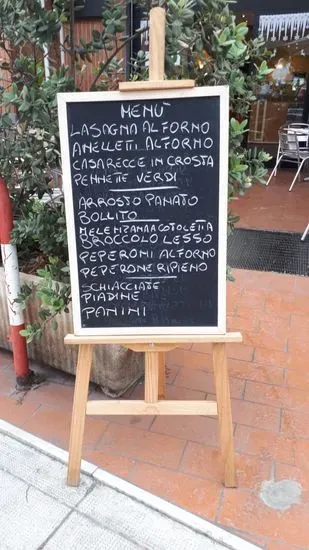 MENU'
LASAGNA AL FORNO
ANELLETTI AL FORNO
CASARECCE IN CROSTA
PENNETTE VERDI
ARROSTO PANATO
BOLLITO
MELENZANNA COTOLETTA
BROCCOLO LESSO
PEPERONI AL FORNO
PEPERONE RIPIENO
SCHIACCIATE
PIADINE
PANINI